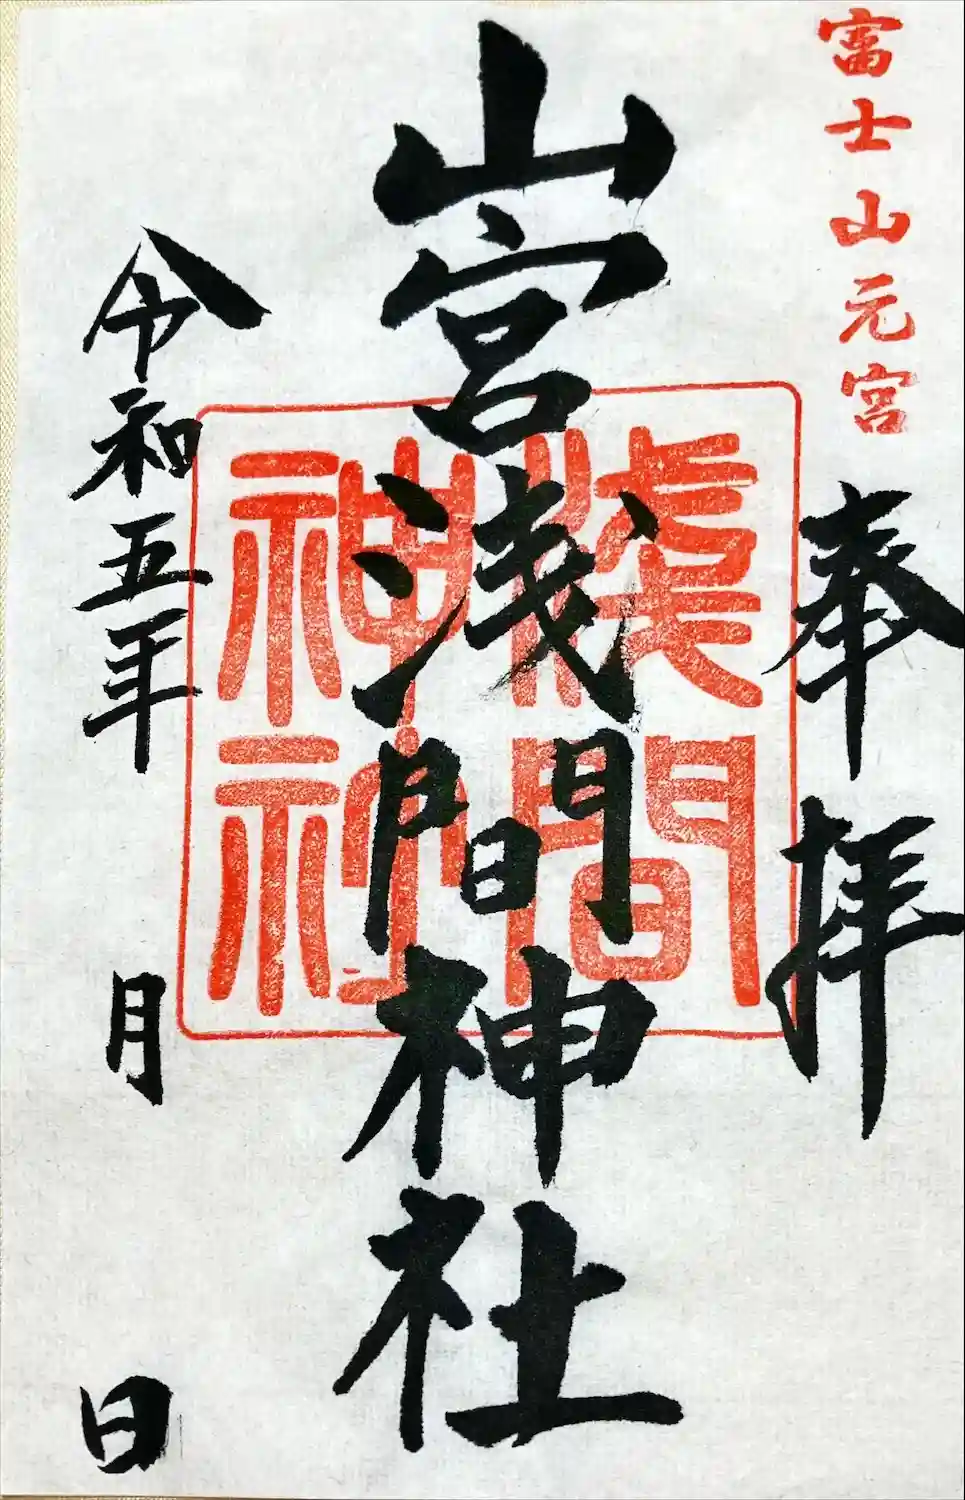 富士山元宮
奉拝
山宮浅間神社
淺間
神社
令和五年
月
日